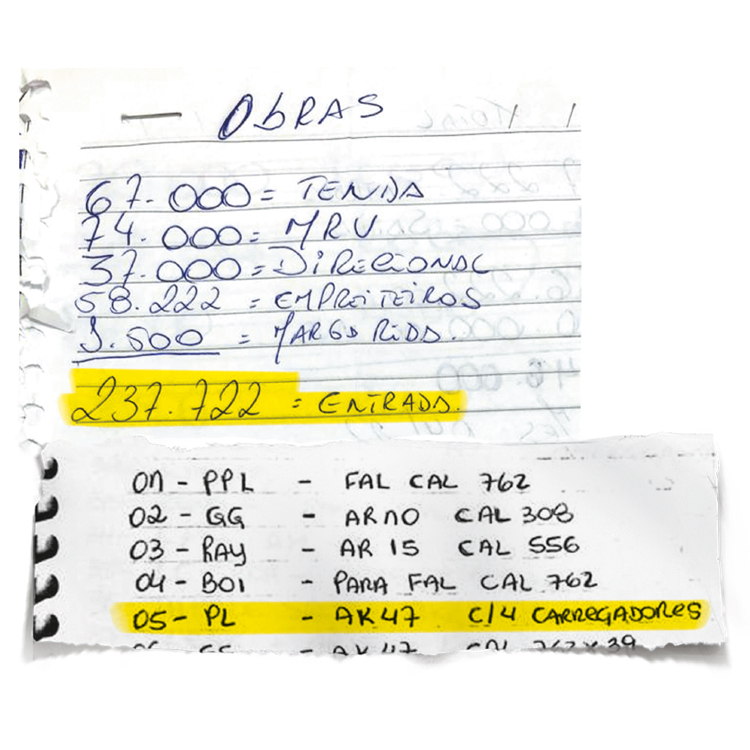 — ObRAS
67.000 = TENDA
74.000 = MRV
37.000 = DIRECIONAL
58.222 = EMPREITEIROS
1.500 = MARGARIDA.
237.722 = ENTRADA.
01 - PPL - FAL CAL 762
02 - GG - AR 10 CAL 308
03 - RAY - AR 15 CAL 556
04 - BOI - PARA FAL CAL 762
05 - PL - AK47 C/4 CARREGADORES
AK 47 CAL 762x39